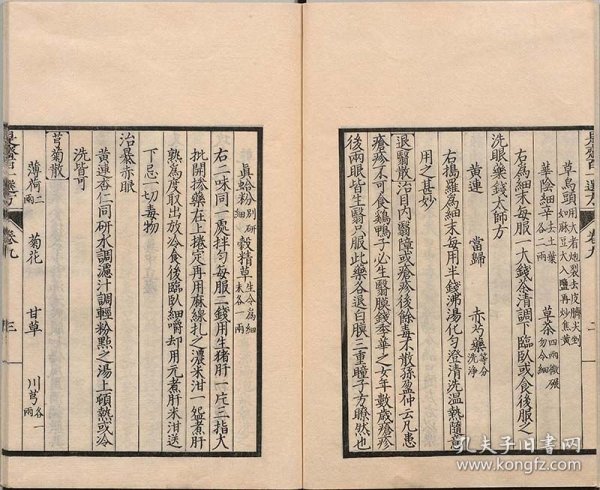 是齋百一選方 卷九 二
草烏頭用大者炮裂去皮臍尖剉如麻豆大入鹽再炒焦黃
華陰細辛去土葉各二兩 草茶四兩微碾勿令細
右為細末每服一大錢茶清調下臨臥或食後服之
洗眼藥錢太師方
黃連 當歸 赤芍藥等分洗淨
右搗羅為細末每用半錢沸湯化勻澄清洗溫熱隨意
用之甚妙
退翳散治目內翳障或瘡疹後餘毒不散孫盈仲云凡患
瘡疹不可食鷄鴨子必生翳膜錢季華之女年數歲瘡疹
後兩眼皆生翳只服此藥各退白膜三重瞳子方瞭然也
眞蛤粉別研細 穀精草生令為細末各一兩
右二味同一處拌勻每服二錢用生猪肝一片三指大
批開摻藥在上捲定再用麻線扎之濃米泔一盌煮肝
熟為度取出放冷食後臨臥細嚼却用元煮肝米泔送
下忌一切毒物
治暴赤眼
黃連杏仁同研水調濾汁調輕粉點之湯上頓熱或冷
洗皆可
芎菊散
薄荷二兩 菊花 甘草 川芎各一兩
是齋百一選方 卷九 三
孔夫子旧书网
www.kongfz.com